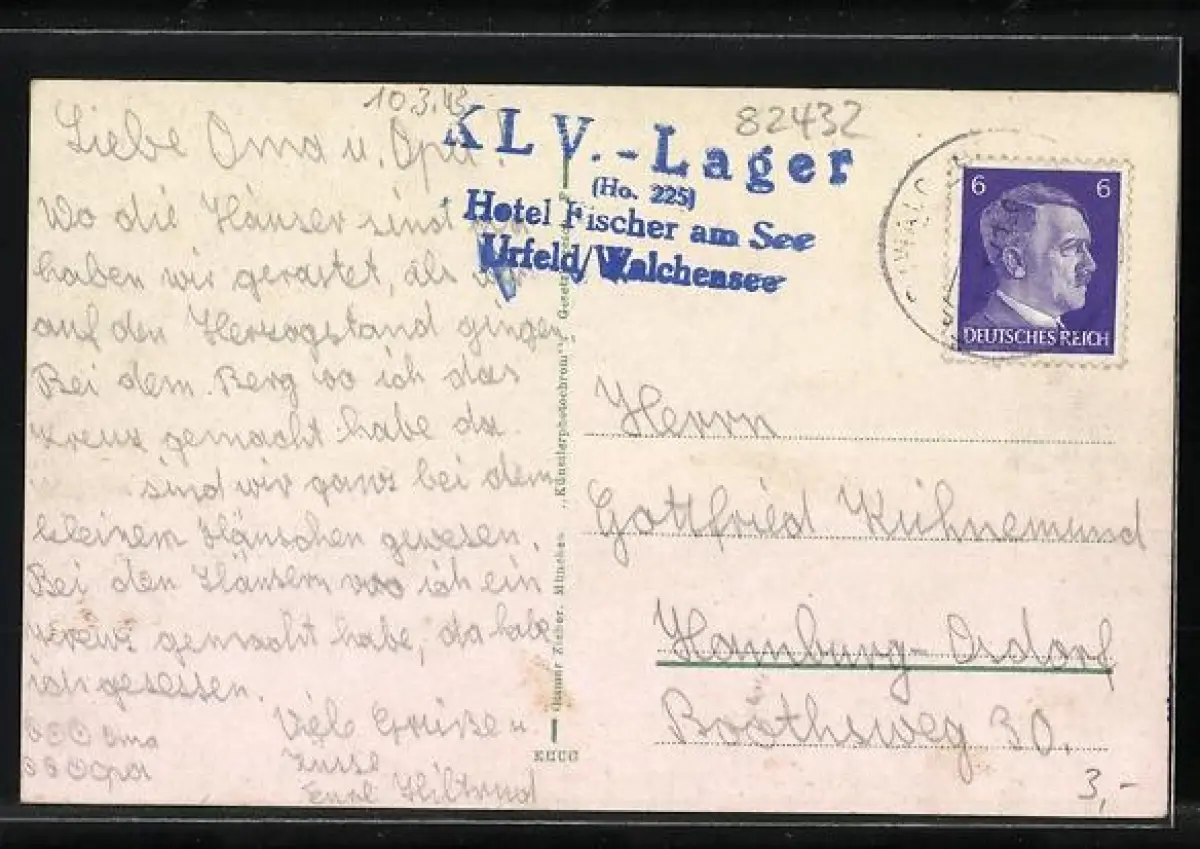 10.3.43
82432
KLV.-Lager
(Ho. 225)
Hotel Fischer am See
Urfeld/Walchensee
6 6
DEUTSCHES REICH
Liebe Oma u. Opa!
Wo die Häuser sind
haben wir gerastet, als wir
auf den Herzogstand gingen
Bei dem Berg wo ich das
Kreuz gemacht habe da
sind wir ganz bei dem
kleinem Häuschen gewesen.
Bei den Häusern wo ich ein
Kreuz gemacht habe, da habe
ich gesessen.
Viele Grüße u
Küsse
Eure Hiltrud
Oma
Opa
"Künstlerphotochrom"
Zieher, München
Herrn
Gottfried Kühnemund
Hamburg-Osdorf
30.
3,-